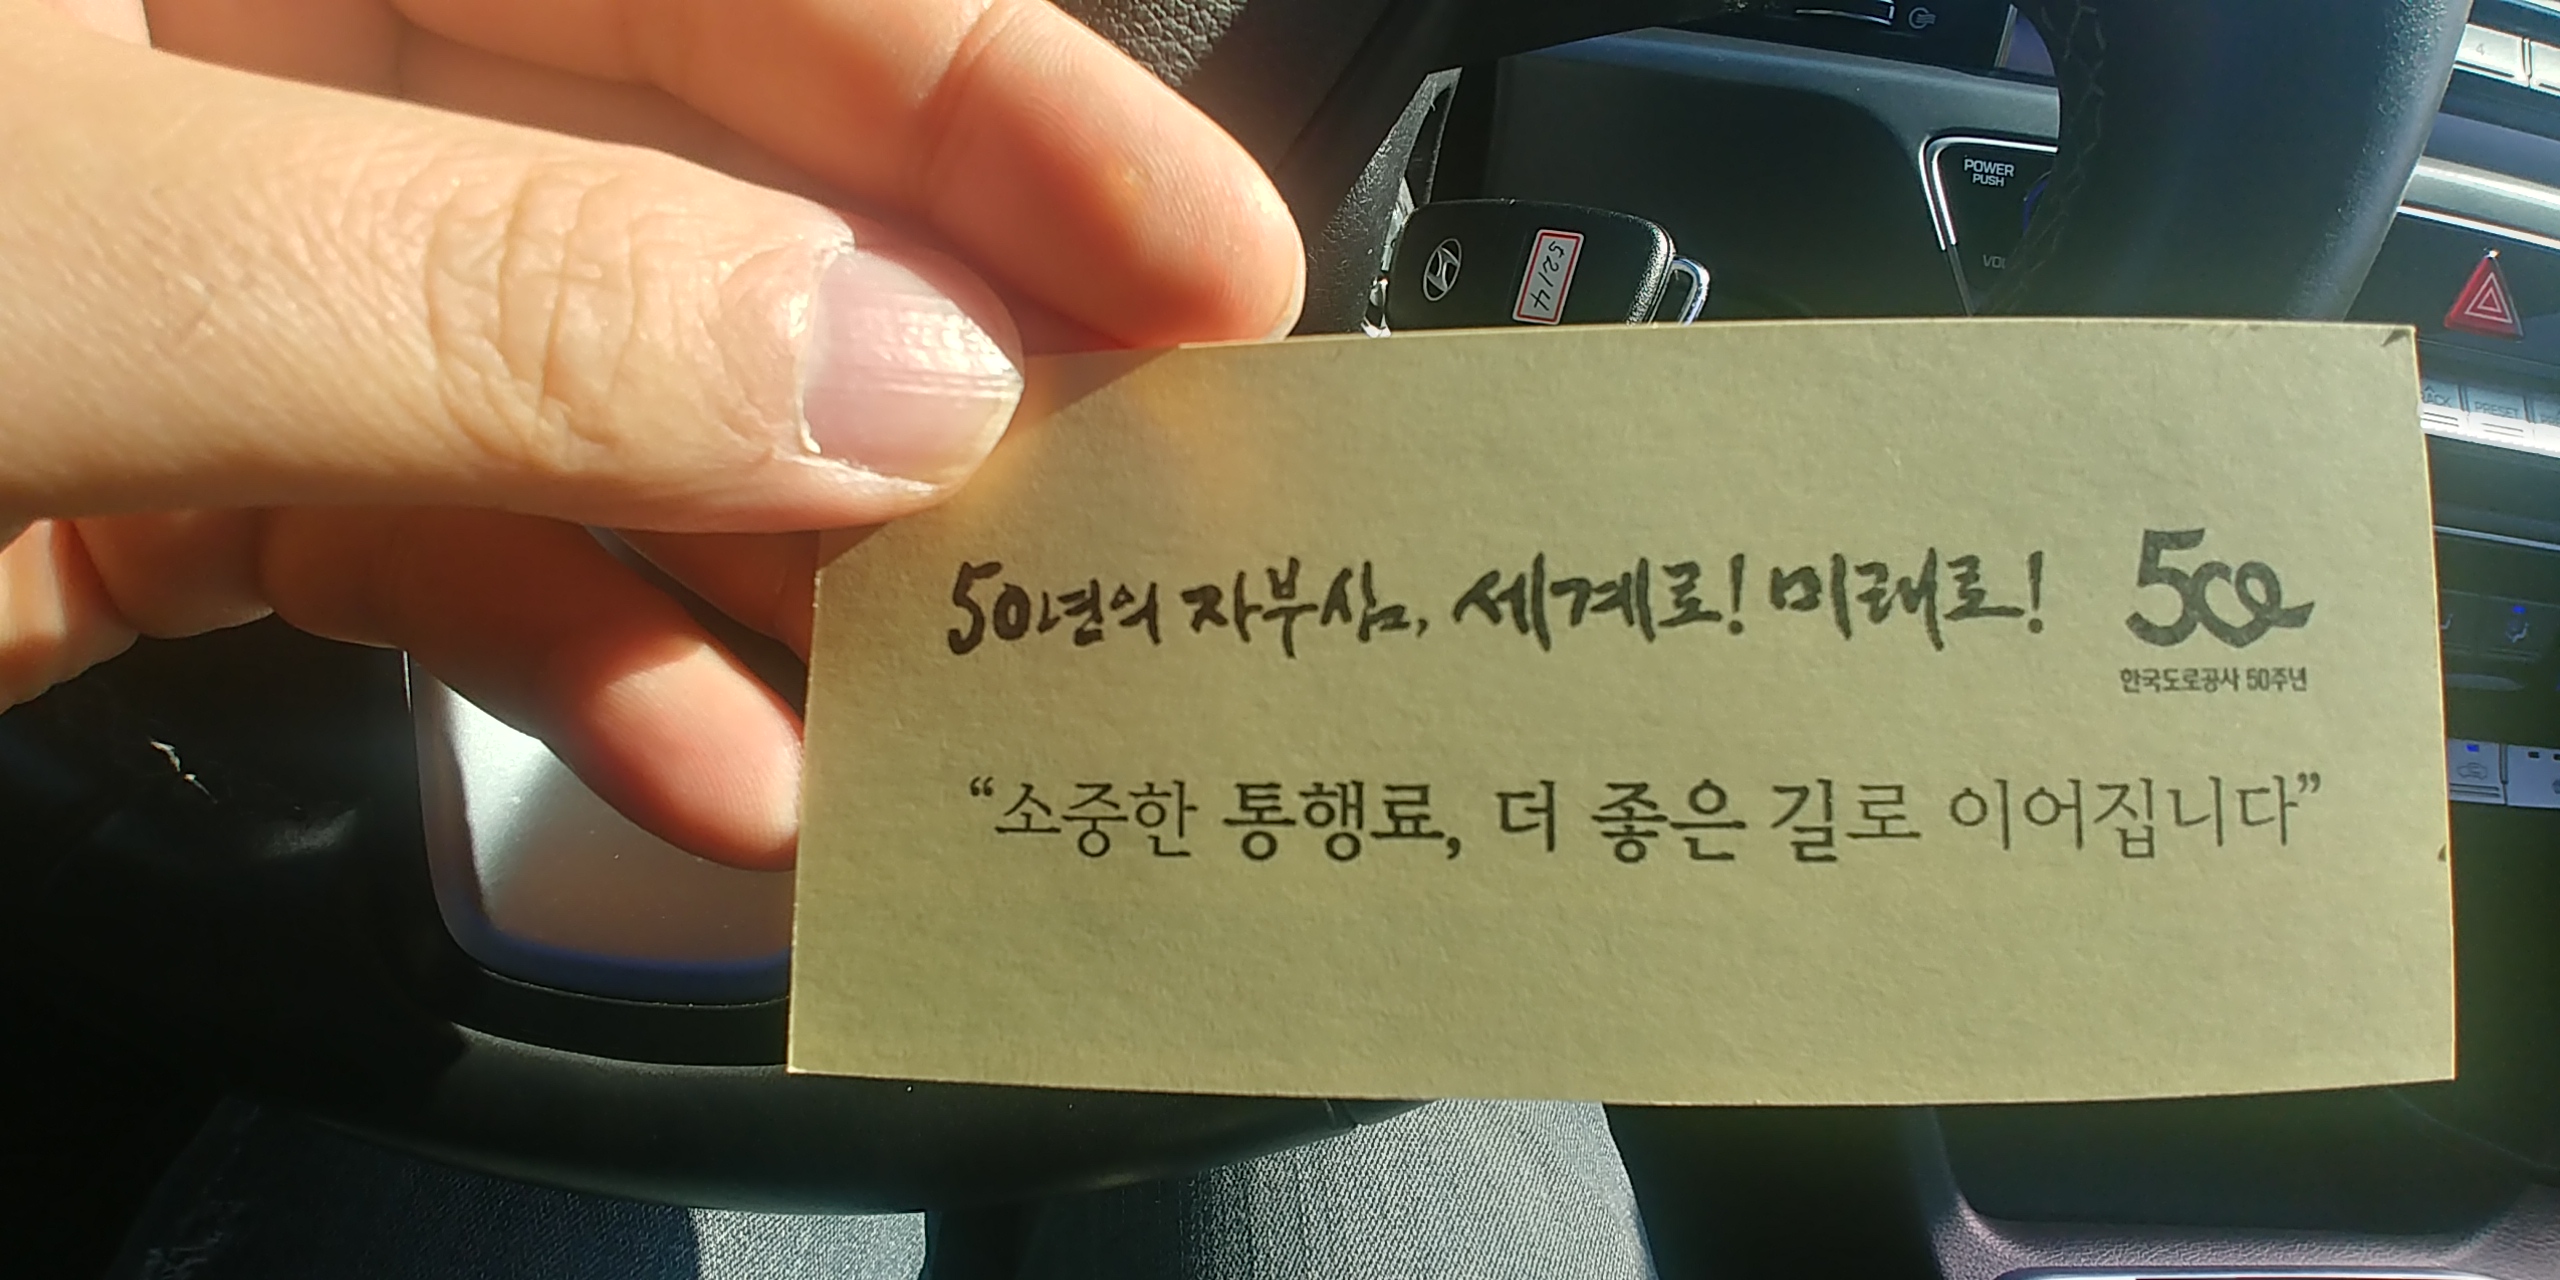 POWER
PUSH
VOL
4
5214
PRESET
50년의 자부심, 세계로! 미래로!
50
한국도로공사 50주년
“소중한 통행료, 더 좋은 길로 이어집니다”